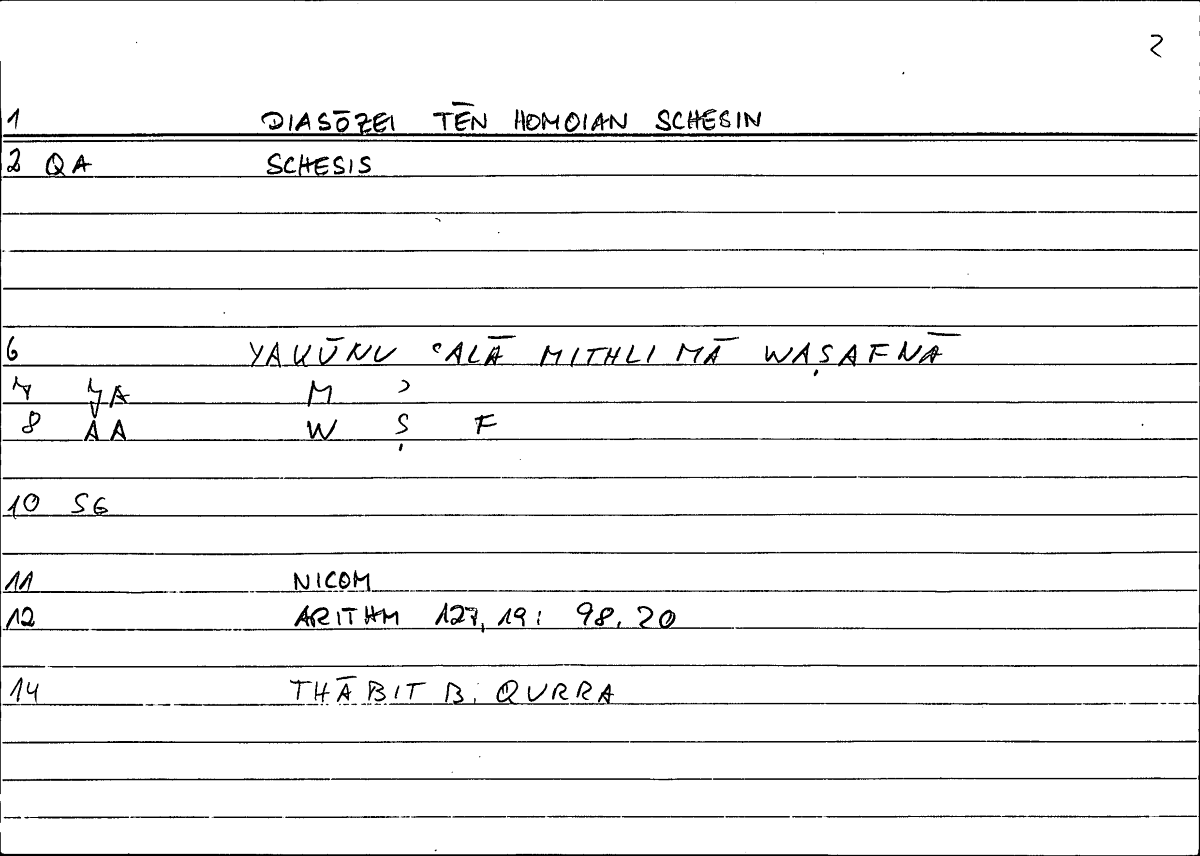 2
1 DIASŌZEI TĒN HOMOIAN SCHESIN
2 QA SCHESIS
6 YAKŪNU ʿALĀ MITHLI MĀ WAṢAFNĀ
7 JA M ʾ
8 AA W Ṣ F
10 SG
11 NICOM
12 ARITHM 127,19: 98,20
14 THĀBIT B. QURRA